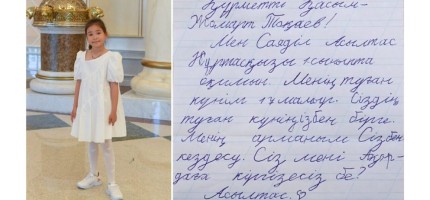 Құрметті Қасым-
Жомарт Тоқаев!
Мен Саяділ Асылтас
Нұртасқызы 1 сынып
оқимын. Менің туған
күнім 17 мамыр. Сіздің
туған күніңізбен бірге.
Менің арманым Сізбен
кездесу. Сіз мені Ақор-
даға кіргізесіз бе?
Асылтас.